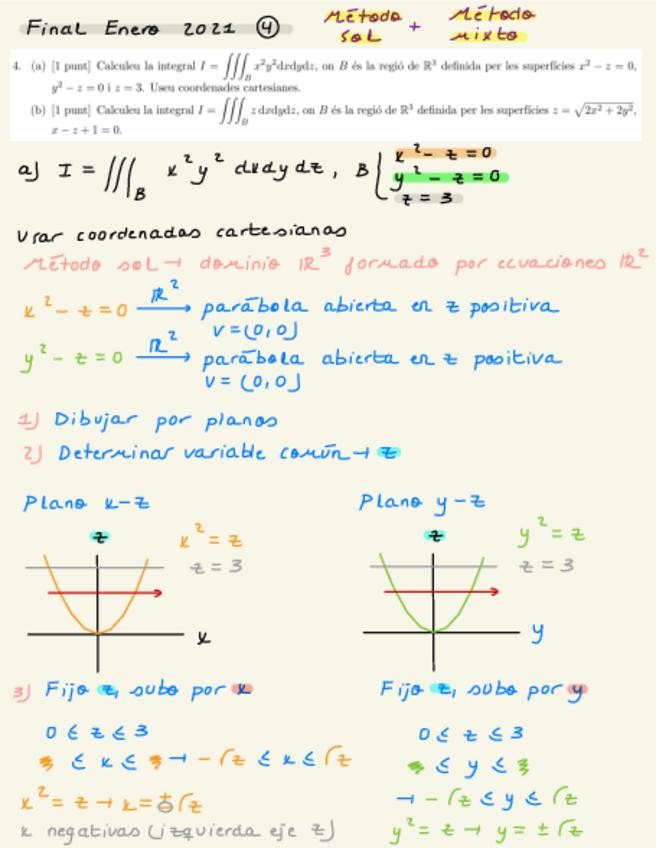 Final Enero 2021 ④ Método sol + Método mixto
4. (a) [1 punt] Calculeu la integral I = ∭_B x²y²dxdydz, on B és la regió de ℝ³ definida per les superfícies x² − z = 0,
y² − z = 0 i z = 3. Useu coordenades cartesianes.
(b) [1 punt] Calculeu la integral I = ∭_B z dxdydz, on B és la regió de ℝ³ definida per les superfícies z = √(2x² + 2y²),
x − z + 1 = 0.
a) I = ∭_B x² y² dxdydz, B { x² − z = 0
y² − z = 0
z = 3
Usar coordenadas cartesianas
Método sol → dominio ℝ³ formado por ecuaciones ℝ²
x² − z = 0 —ℝ²→ parábola abierta en z positiva
V = (0,0)
y² − z = 0 —ℝ²→ parábola abierta en z positiva
V = (0,0)
1) Dibujar por planos
2) Determinar variable común → z
Plano x−z
z
x² = z
z = 3
x
Plano y−z
z
y² = z
z = 3
y
3) Fijo z, subo por x
0 ≤ z ≤ 3
≤ x ≤ → −√z ≤ x ≤ √z
x² = z → x = ±√z
x negativas (izquierda eje z)
Fijo z, subo por y
0 ≤ z ≤ 3
≤ y ≤
→ −√z ≤ y ≤ √z
y² = z → y = ±√z